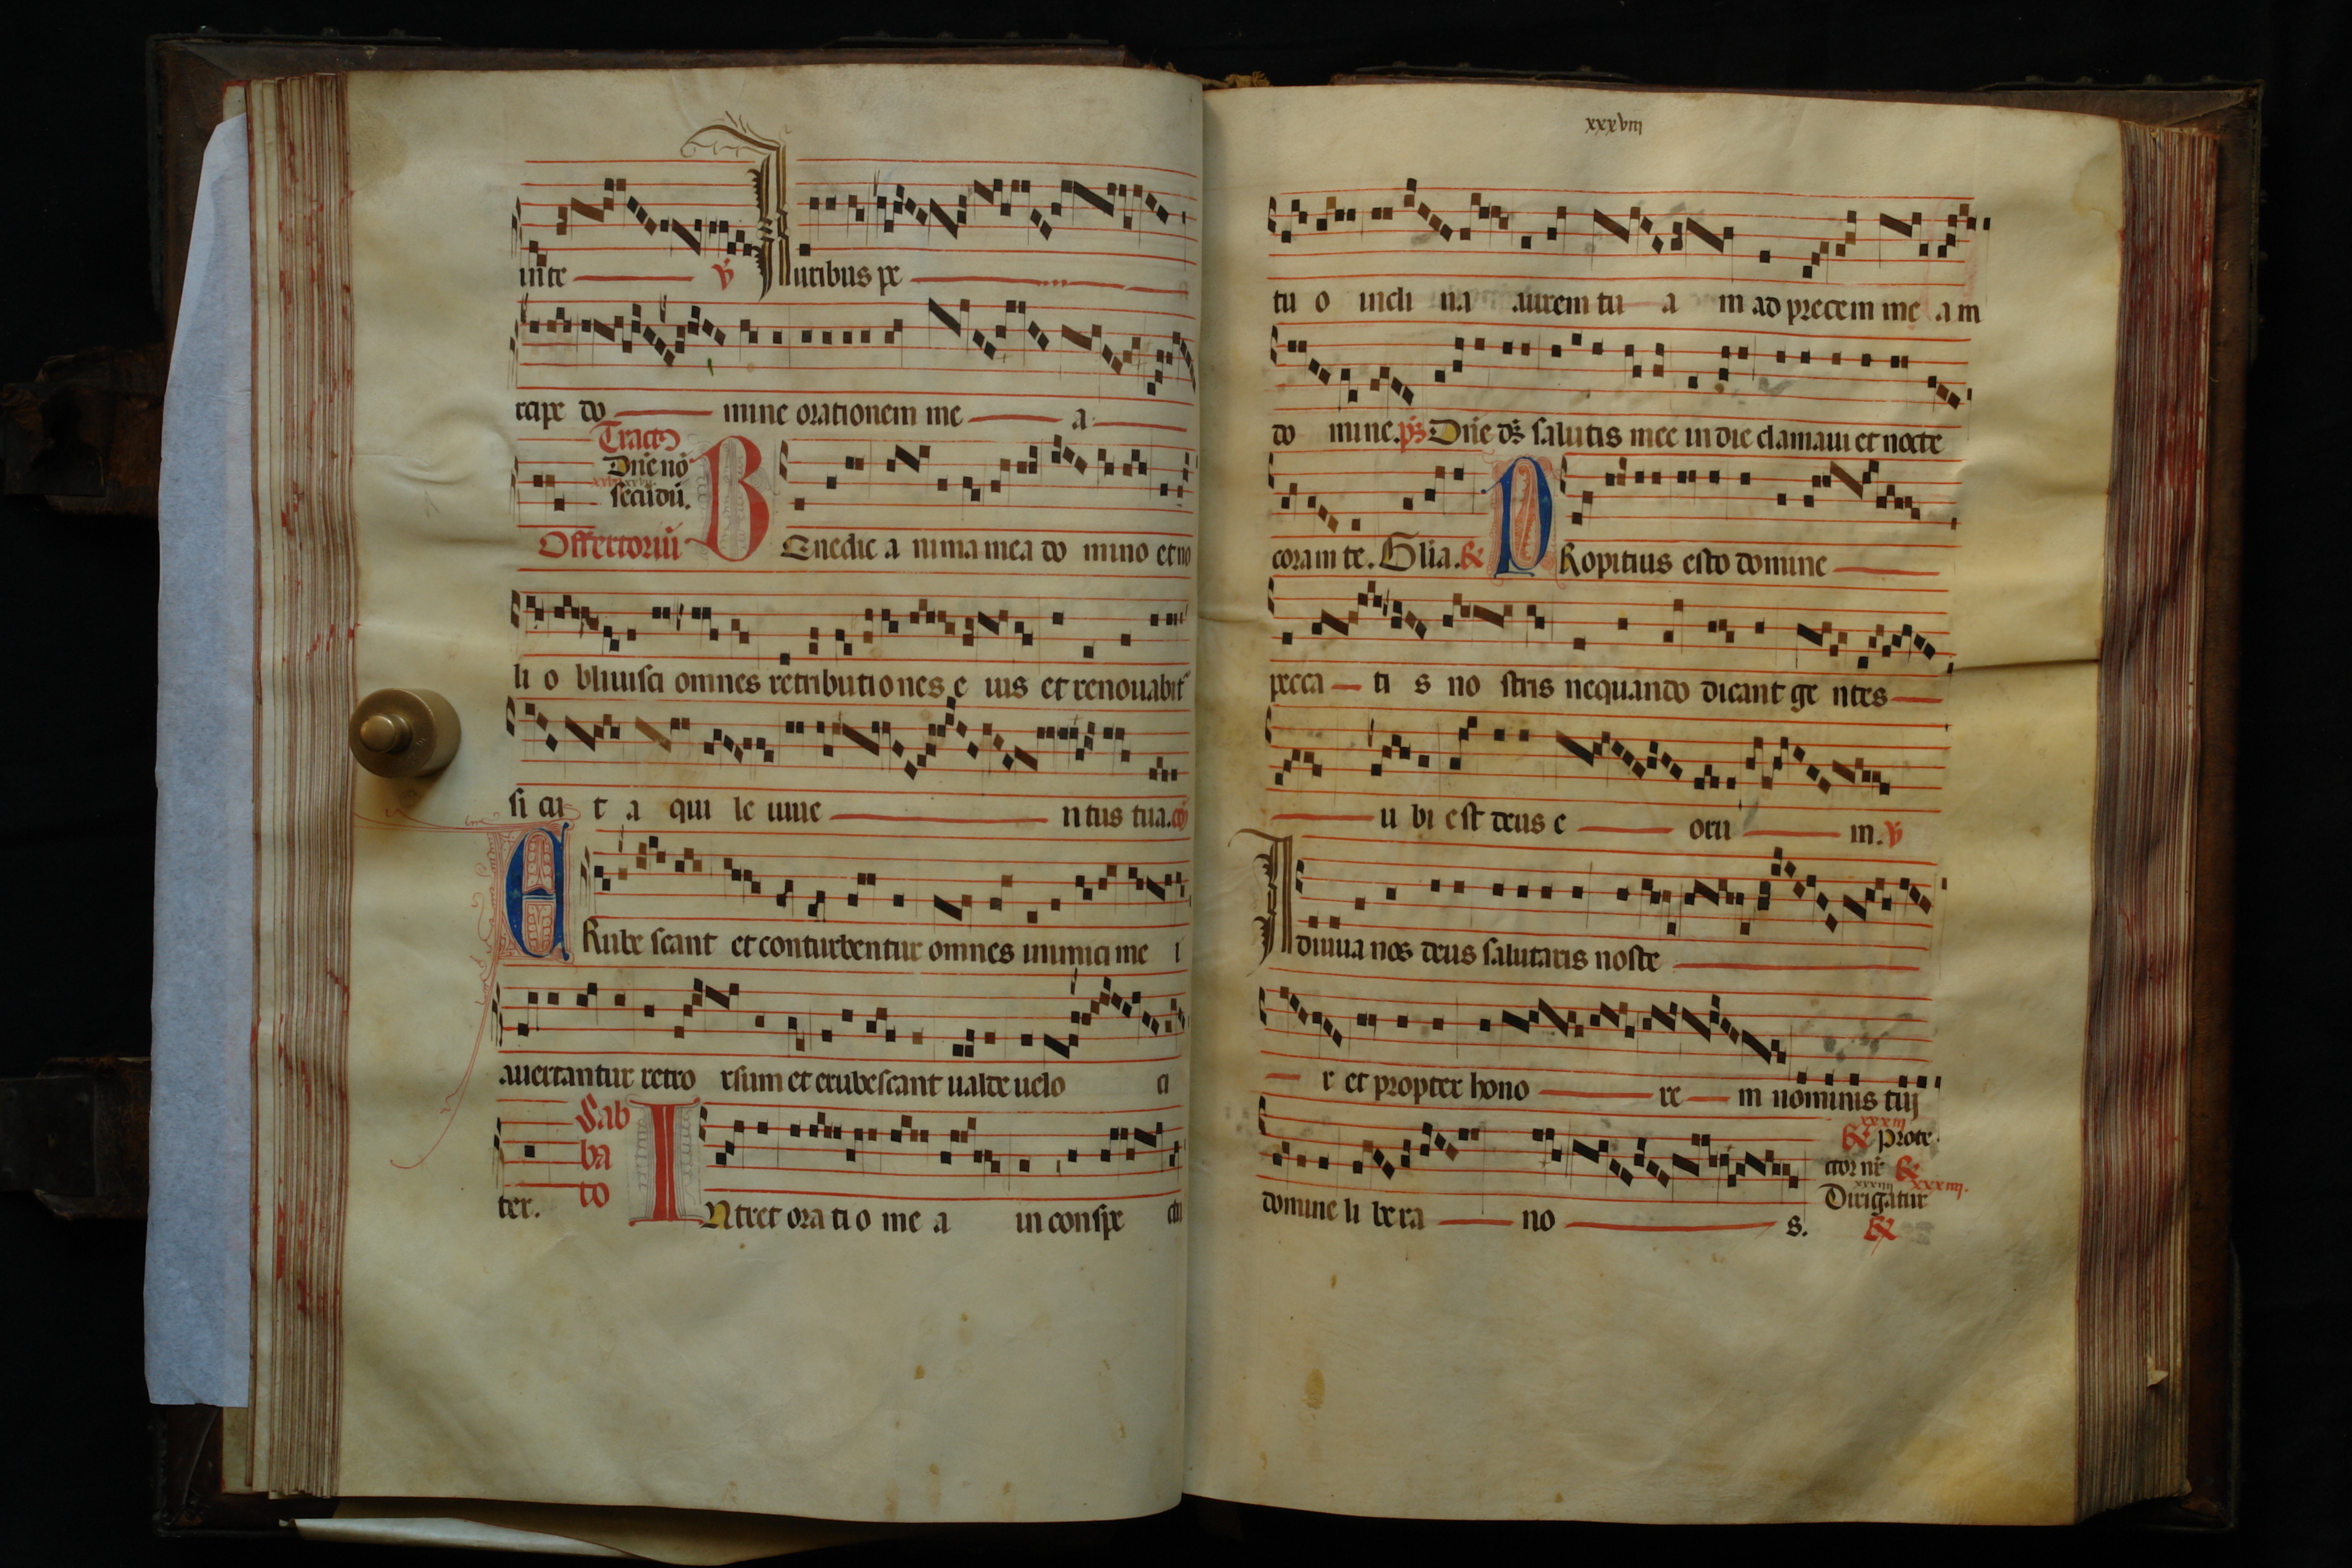 in te v Auribus pe
rcipe do mine orationem me a
Tract9
Dñe nõ
secũdũ.
Offertoriũ BEnedic a nima mea do mino et no
li o bliuisci omnes retributiones e ius et renouabit
si cu t a qui le iuue ntus tua. cõ
ERube scant et conturbentur omnes inimici me i
auertantur retro rsum et erubescant ualde uelo ci
ter. Sab
ba
to INtret ora ti o me a in conspe ctu
xxxviii
tu o incli na aurem tu a m ad precem me a m
do mine. ps Dñe ds salutis mee in die clamaui et nocte
coram te. Glia. R PRopitius esto domine
pecca ti s no stris nequando dicant ge ntes
u bi est deus e oru m. v
Adiuua nos deus salutaris noste
r et propter hono re m nominis tui
domine li be ra no s.
xxxiii
R Prote
ctor nr R
xxxiiii xxxiiii.
Dirigatur
R